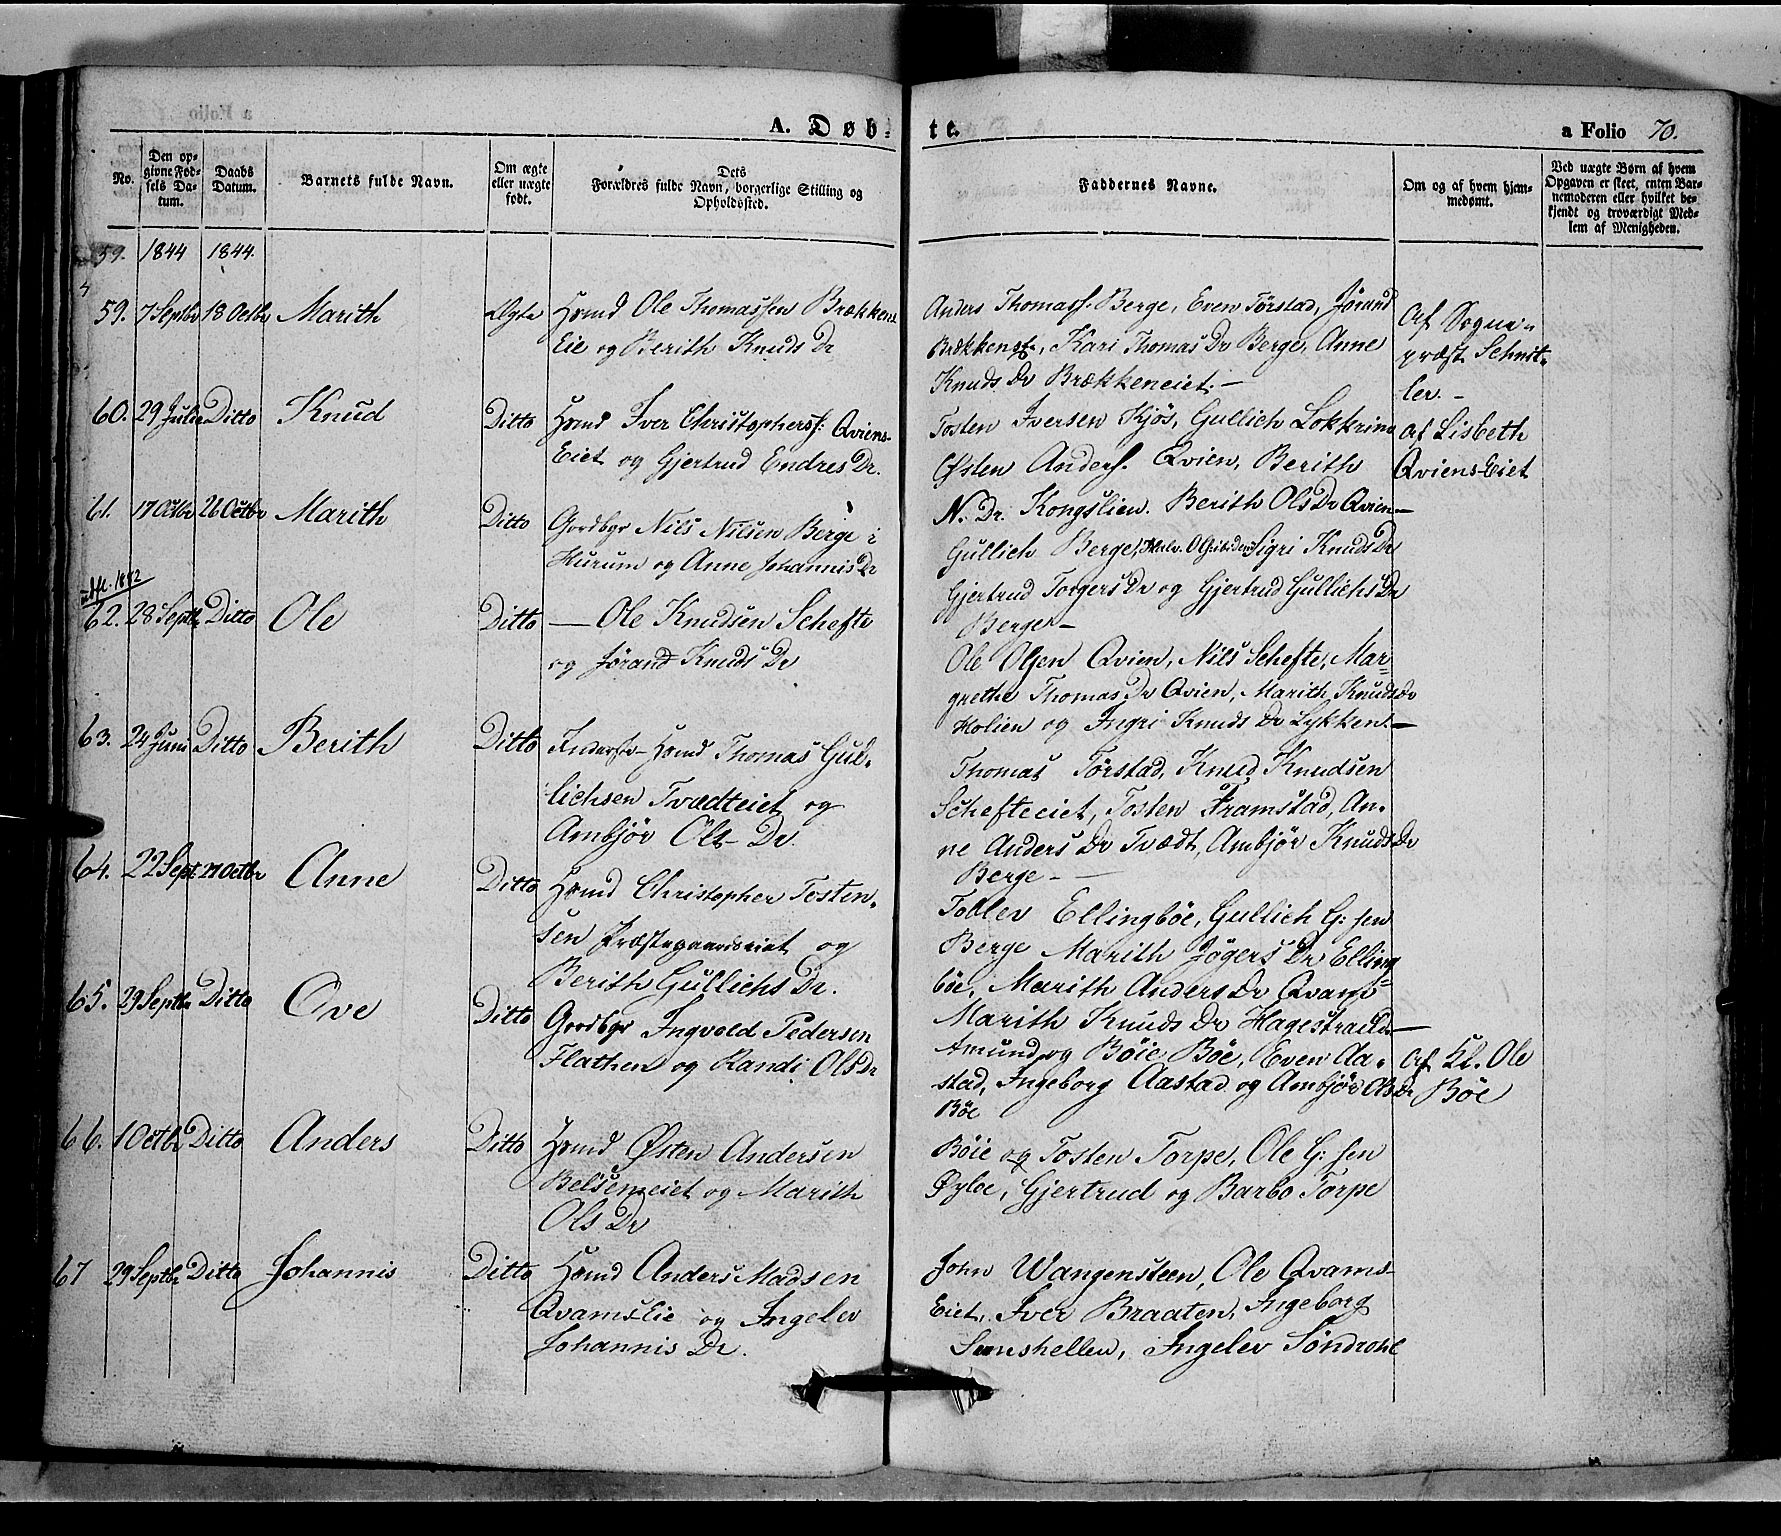 A. Døb-
te.
a Folio 70.
No.
Den op-
givne Fød-
sels Da-
tum.
Daabs
Datum.
Barnets fulde Navn.
Om ægte
eller uægte
født.
Dets
Forældres fulde Navn, borgerlige Stilling og
Opholdssted.
Faddernes Navne.
Om og af hvem hjem-
medømt.
Ved uægte Børn af hvem
Opgaven er skeet, enten Bar-
nemoderen eller hvilket be-
kjendt og troværdigt Med-
lem af Menigheden.
59. 1844 1844.
59. 7 Septbr 18 Octbr Marith Ægte Hmd Ole Thomassen Brækkens
Eie og Berith Knuds Dr
Anders Thomass. Berge, Even Tørstad, Jørand
Brækkens, Kari Thomas Dr Berge, Anne
Knuds Dr Brækkeneiet. -
Af Sogne-
præst Schnit-
ler. -
60. 29 Julii Ditto Knud Ditto Hmd Iver Christophers: Qviens-
Eiet og Gjertrud Endres Dr.
Tosten Iversen Kjös, Gullich Lokkrine
Østen Anders. Qvien, Berith
N. Dr. Kongslien. Berith Ols Dr Qvien -
Af Lisbeth
Qviens-Eiet
61. 17 Octbr 26 Octbr Marith Ditto Gordbgr Nils Nilsen Berge i
Hurum og Anne Johannis Dr
Gullich Berge, Sigri Knuds Dr
Gjertrud Torgers Dr og Gjertrud Gullichs Dr
Berge -
1882
62. 28 Septbr Ditto Ole Ditto — Ole Knudsen Schefte
og Jørand Knuds Dr
Ole Olsen Qvien, Nils Schefte, Mar-
grethe Thomas Dr Qvien, Marith Knuds Dr
Holien og Ingri Knuds Dr Lykken. -
63. 24 Juni Ditto Berith Ditto Inderste Hmd Thomas Gul-
lichsen Tvædteiet og
Ambjör Ols- Dr.
Thomas Tørstad, Knud Knudsen
Schefteeiet, Tosten Framstad, An-
ne Anders Dr Tvædt, Ambjör Knuds Dr
Berge -
64. 22 Sept. 27 Octbr Anne Ditto Hmd Christopher Tosten-
sen Præstegaardseiet og
Berith Gullichs Dr.
Tollev Ellingböe, Gullich G: sen
Berge Marith Jögers Dr Elling-
böe, Marith Anders Dr Qvam
Marith Knuds Dr Hagestrand -
65. 29 Septbr Ditto Ove Ditto Gordbgr Ingvald Pedersen
Flathen og Randi Ols Dr
Amund og Böie Böe, Even Aa-
stad, Ingeborg Aastad og Ambjör Ols Dr
Böe
Af Kl. Ole
Böe
66. 1 Octbr Ditto Anders Ditto Hmd Østen Andersen
Belseneiet og Marith
Ols Dr
Böie og Tosten Torpe, Ole G: sen
Øyloe, Gjertrud og Barbo Torpe
67 29 Septbr Ditto Johannis Ditto Hmd Anders Madsen
QvamsEie og Ingelev
Johannis Dr.
John Wangensteen, Ole Qvams-
Eiet, Iver Braaten, Ingeborg
Sunshellen, Ingelev Söndrohl